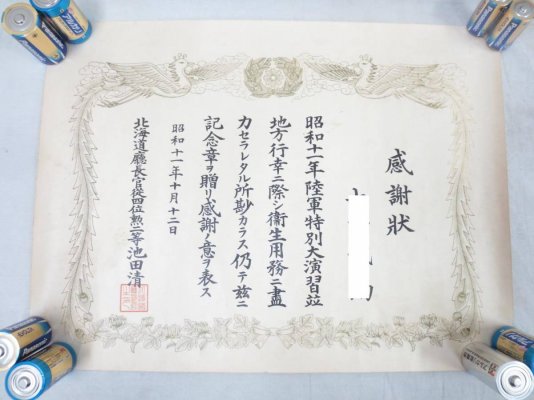 感謝状
昭和十一年陸軍特別大演習並
地方行幸ニ際シ衛生用務ニ盡
力セラレタル所尠カラス仍テ茲ニ
記念章ヲ贈リ感謝ノ意ヲ表ス
昭和十一年十月十二日
北海道廳長官從四位勲二等池田清
Panasonic